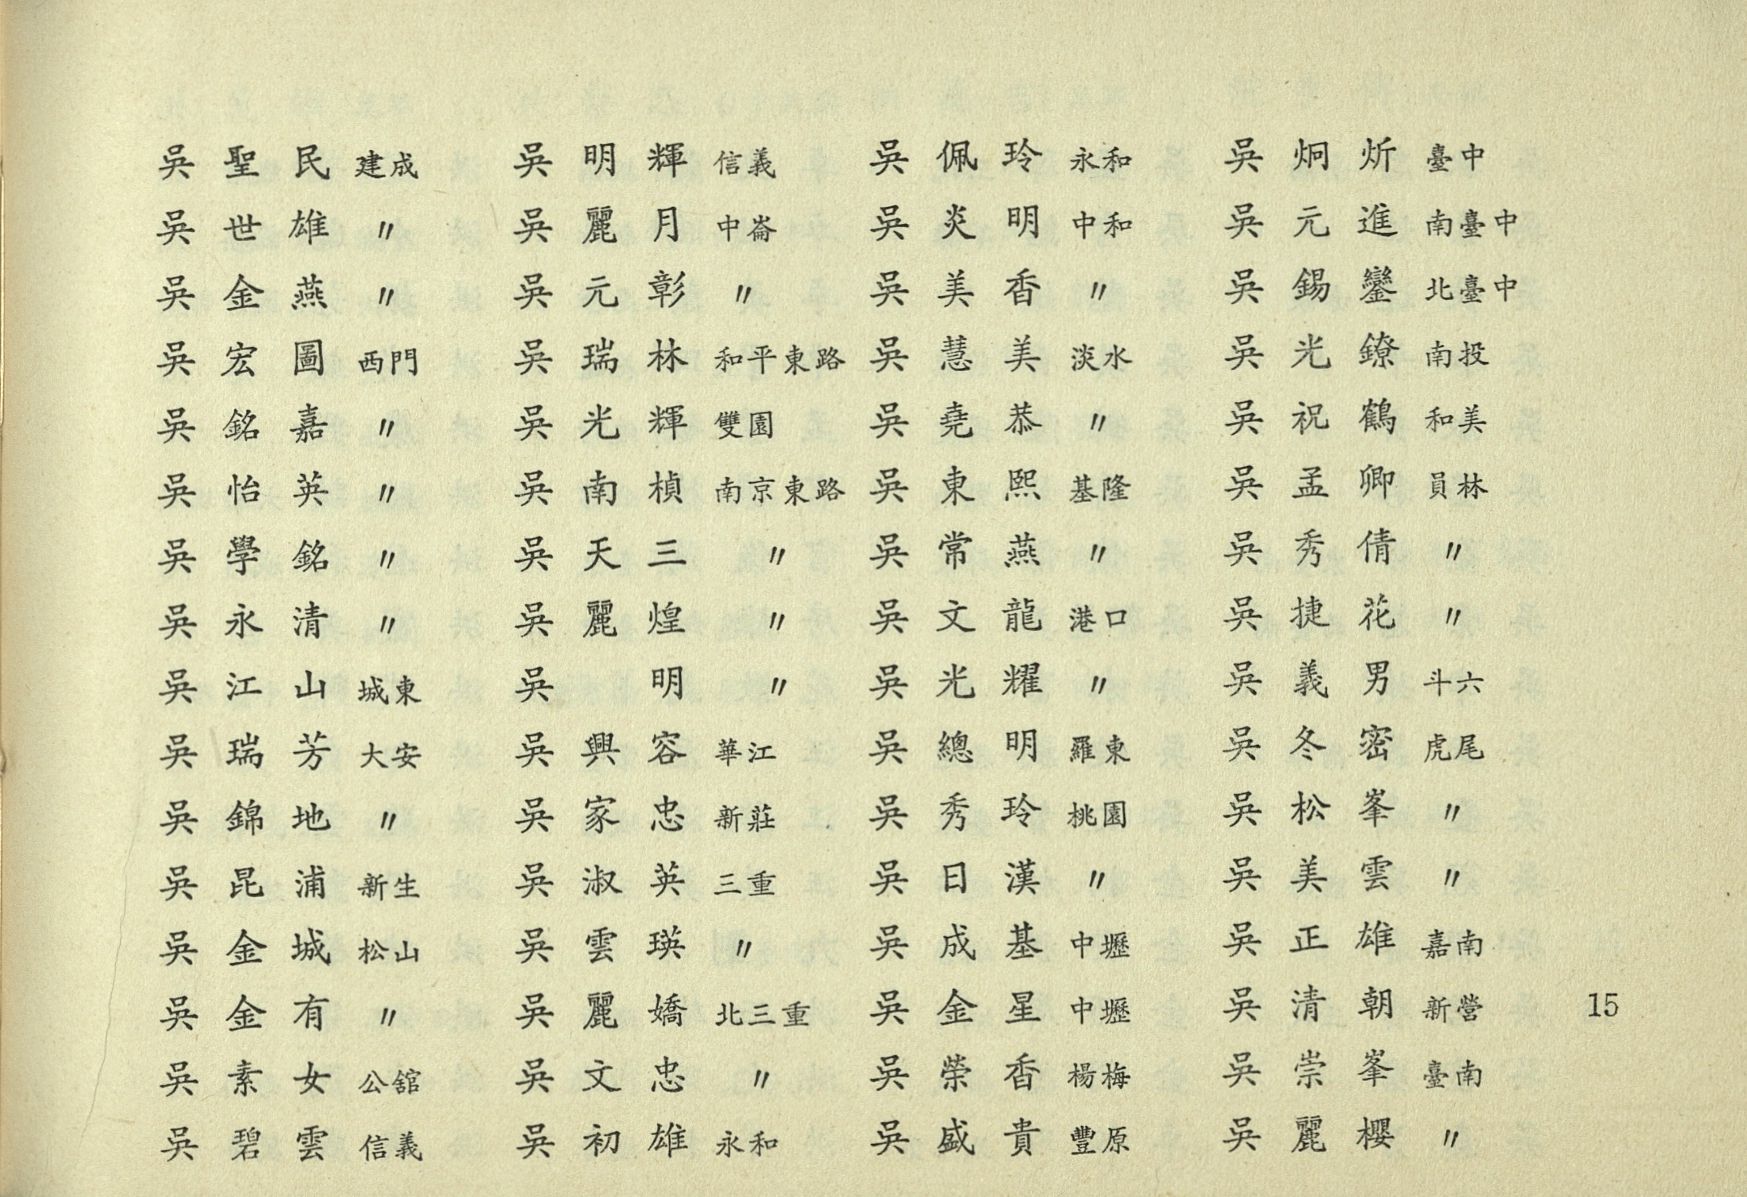 吳聖民 建成
吳世雄 〃
吳金燕 〃
吳宏圖 西門
吳銘嘉 〃
吳怡英 〃
吳學銘 〃
吳永清 〃
吳江山 城東
吳瑞芳 大安
吳錦地 〃
吳昆浦 新生
吳金城 松山
吳金有 〃
吳素女 公舘
吳碧雲 信義
吳明輝 信義
吳麗月 中崙
吳元彰 〃
吳瑞林 和平東路
吳光輝 雙園
吳南楨 南京東路
吳天三 〃
吳麗煌 〃
吳明 〃
吳興容 華江
吳家忠 新莊
吳淑英 三重
吳雲瑛 〃
吳麗嬌 北三重
吳文忠 〃
吳初雄 永和
吳佩玲 永和
吳炎明 中和
吳美香 〃
吳慧美 淡水
吳堯恭 〃
吳東熙 基隆
吳常燕 〃
吳文龍 港口
吳光耀 〃
吳總明 羅東
吳秀玲 桃園
吳日漢 〃
吳成基 中壢
吳金星 中壢
吳榮香 楊梅
吳盛貴 豐原
吳炯炘 臺中
吳元進 南臺中
吳錫鑾 北臺中
吳光鐐 南投
吳祝鶴 和美
吳孟卿 員林
吳秀倩 〃
吳捷花 〃
吳義男 斗六
吳冬密 虎尾
吳松峯 〃
吳美雲 〃
吳正雄 嘉南
吳清朝 新營
吳崇峯 臺南
吳麗櫻 〃
15